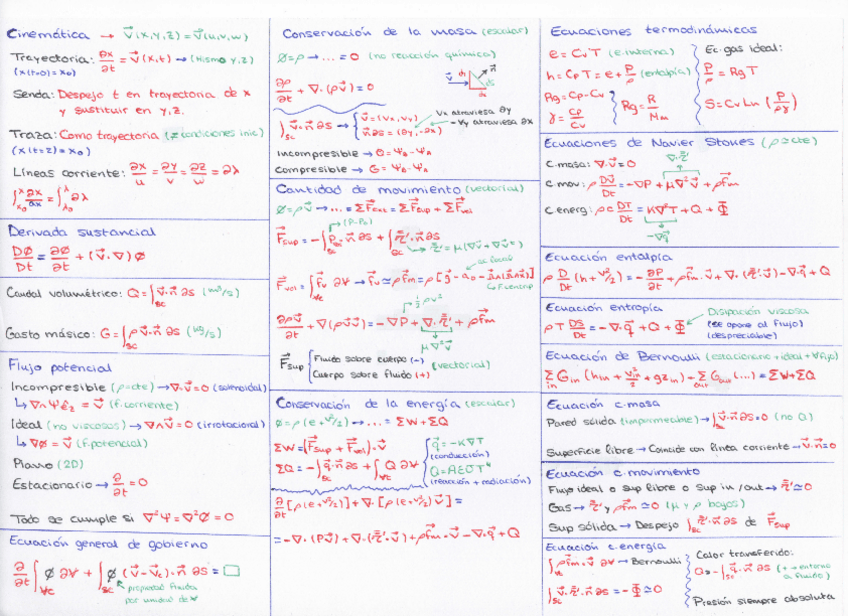 Cinemática → v⃗(x,y,z) = v⃗(u,v,w)
Trayectoria: ∂x/∂t = v⃗(x,t) → (Mismo y,z)
(x(t=0) = x₀)
Senda: Despejo t en trayectoria de x
y sustituir en y,z.
Traza: Como trayectoria (≠ condiciones inic)
(x(t=z) = x₀)
Líneas corriente: ∂x/u = ∂y/v = ∂z/w = ∂λ
Derivada sustancial
DØ/Dt = ∂Ø/∂t + (v⃗·∇)Ø
Caudal volumétrico: Q = ∫sc v⃗·n⃗ ∂s (m³/s)
Gasto másico: G = ∫sc ρ v⃗·n⃗ ∂s (kg/s)
Flujo potencial
Incompresible (ρ=cte) → ∇·v⃗ = 0 (solenoidal)
↳ ∇∧Ψ ê₂ = v⃗ (f.corriente)
Ideal (no viscosas) → ∇∧v⃗ = 0 (irrotacional)
↳ ∇Ø = v⃗ (f.potencial)
Plano (2D)
Estacionario → ∂/∂t = 0
Todo se cumple si ∇²Ψ = ∇²Ø = 0
Ecuación general de gobierno
∂/∂t ∫vc Ø ∂∀ + ∫sc Ø (v⃗ - v⃗c)·n⃗ ∂s = □
propiedad fluida
por unidad de ∀
Conservación de la masa (escalar)
Ø = ρ → ... = 0 (no reacción química)
∂ρ/∂t + ∇·(ρv⃗) = 0
∫sc v⃗·n⃗ ∂s → { v⃗ = (Vx, Vy)
n⃗ ∂s = (∂y, -∂x)
Vx atraviesa ∂y
-Vy atraviesa ∂x
Incompresible → Q = ΨB - ΨA
Compresible → G = ΨB - ΨA
Cantidad de movimiento (vectorial)
Ø = ρv⃗ → ... = ΣF⃗ext = ΣF⃗sup + ΣF⃗vol
(P-P₀)
F⃗vol = ∫vc f⃗v ∂∀ → f⃗v ≃ ρf⃗m = ρ[g⃗ - a⃗₀ - Ω⃗∧(Ω⃗∧R⃗)]
↳ F.centrip
∂ρv⃗/∂t + ∇(ρv⃗v⃗) = -∇P + ∇·τ⃗' + ρf⃗m
μ∇²v⃗
F⃗sup { Fluido sobre cuerpo (-)
Cuerpo sobre fluido (+) (vectorial)
Conservación de la energía (escalar)
Ø = ρ(e + v²/2) → ... ΣW + ΣQ
ΣW = (F⃗sup + F⃗vol)·v⃗
ΣQ = -∫sc q⃗·n⃗ ∂s + ∫vc Q ∂∀
q⃗ = -K∇T
(conducción)
Q = AEσT⁴
(reacción + radiación)
∂/∂t [ρ(e+v²/2)] + ∇·[ρ(e+v²/2)v⃗] =
= -∇·(Pv⃗) + ∇·(τ⃗'·v⃗) + ρf⃗m·v⃗ - ∇·q⃗ + Q
Ecuaciones termodinámicas
e = Cv T (e.interna)
h = Cp T = e + P/ρ (entalpía)
Rg = Cp - Cv
γ = Cp/Cv
Rg = R/Mm
Ec. gas ideal:
P/ρ = Rg T
S = Cv Ln (P/ργ)
Ecuaciones de Navier Stokes (ρ ≃ cte)
∇·τ⃗'
c.masa: ∇·v⃗ = 0
c.mov: ρ Dv⃗/Dt = -∇P + μ∇²v⃗ + ρf⃗m
c.energ: ρc DT/Dt = K∇²T + Q + Φ
-∇q⃗
Ecuación entalpía
ρ D/Dt (h + v²/2) = -∂P/∂t + ρf⃗m·v⃗ + ∇·(τ⃗'·v⃗) - ∇·q⃗ + Q
Ecuación entropía
ρT DS/Dt = -∇·q⃗ + Q + Φ
Disipación viscosa
(se opone al flujo)
(despreciable)
Ecuación de Bernoulli (estacionario + ideal + ∀ flujo)
Σin Gin (hin + v²in/2 + gzin) - Σout Gout (...) = ΣW + ΣQ
Ecuación c.masa
Pared sólida (impermeable) → ∫sc v⃗·n⃗ ∂s = 0 (no Q)
Superficie libre → Coincide con línea corriente → v⃗·n⃗ = 0
Ecuación c.movimiento
Flujo ideal o sup libre o sup in/out → τ⃗' ≃ 0
Gas → τ⃗' y ρf⃗m ≃ 0 (μ y ρ bajos)
Sup sólida → Despejo ∫sc τ⃗'·n⃗ ∂s de F⃗sup
Ecuación c.energía
∫vc ρf⃗m·v⃗ ∂∀ → Bernoulli
Calor transferido:
Q = -∫sc q⃗·n⃗ ∂s (+ → entorno
a fluido)
Presión siempre absoluta